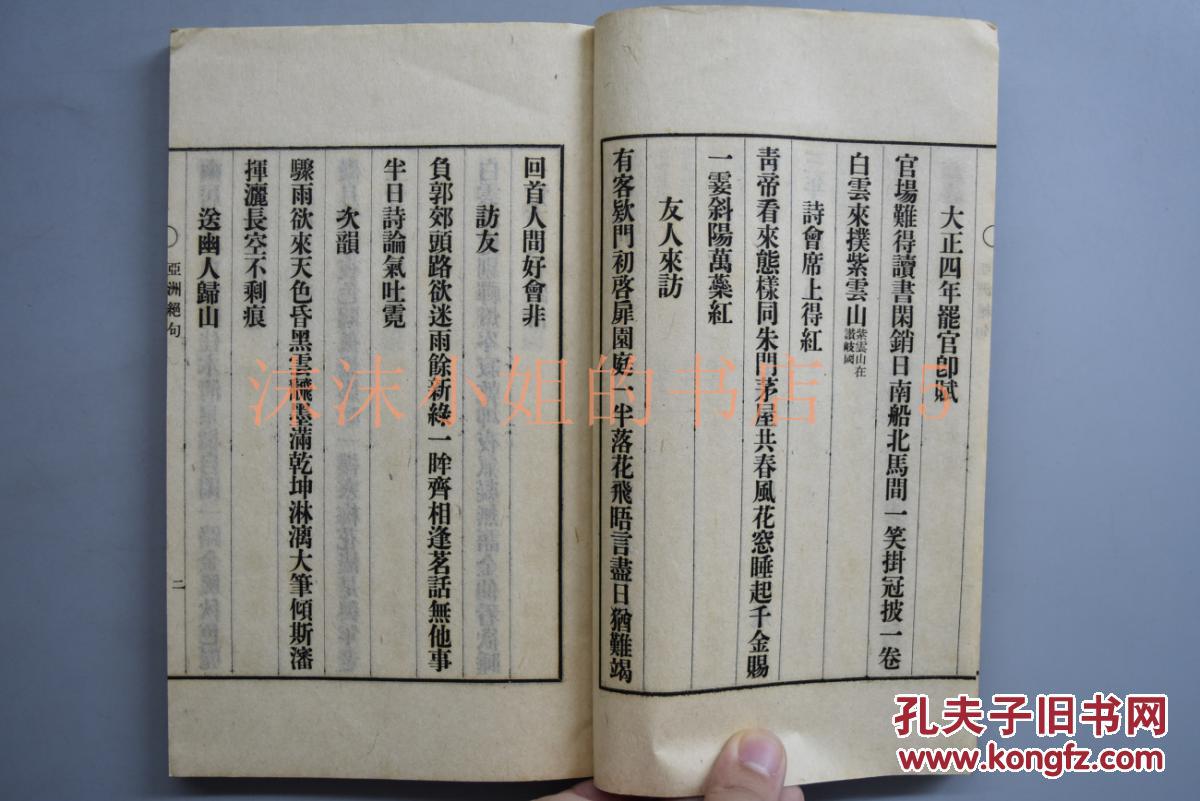 大正四年罷官卽賦
官場難得讀書閑銷日南船北馬間一笑掛冠披一卷
白雲來撲紫雲山紫雲山在讃岐國
詩會席上得紅
靑帝看來態樣同朱門茅屋共春風花窓睡起千金賜
一霎斜陽萬蘂紅
友人來訪
有客欵門初啓扉園庭一半落花飛晤言盡日猶難竭
回首人間好會非
訪友
負郭郊頭路欲迷雨餘新綠一眸齊相逢茗話無他事
半日詩論氣吐霓
次韻
驟雨欲來天色昏黑雲墨滿乾坤淋漓大筆傾斯瀋
揮灑長空不剩痕
送幽人歸山
亞洲絕句
二
沫沫小姐的书店 5
孔夫子旧书网
www.kongfz.com